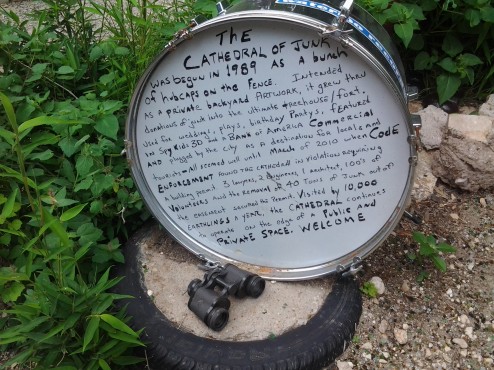 The
CATHEDRAL OF JUNK
was begun in 1989 as a bunch
of hubcaps on the fence. Intended
as a private backyard ARTWORK, it grew thru
donations of junk into the ultimate treehouse/fort.
Used for weddings, plays, birthday Partys, FEATURED
IN Spy Kids 3D and a BANK of AMERICA COMMERCIAL
AND plugged by the city as a destination for locals and
tourists. All seemed well until March of 2010 when CODE
ENFORCEMENT found THE CATHEDRAL in violation requiring
a building permit. 3 lawyers, 2 engineers, 1 architect, 100's of
Volunteers and the removal of 40 Tons of Junk out of
the easement secured the Permit. Visited by 10,000
EARTHLINGS A YEAR, THE CATHEDRAL continues
to operate on the edge of a Public and
PRIVATE SPACE. WELCOME